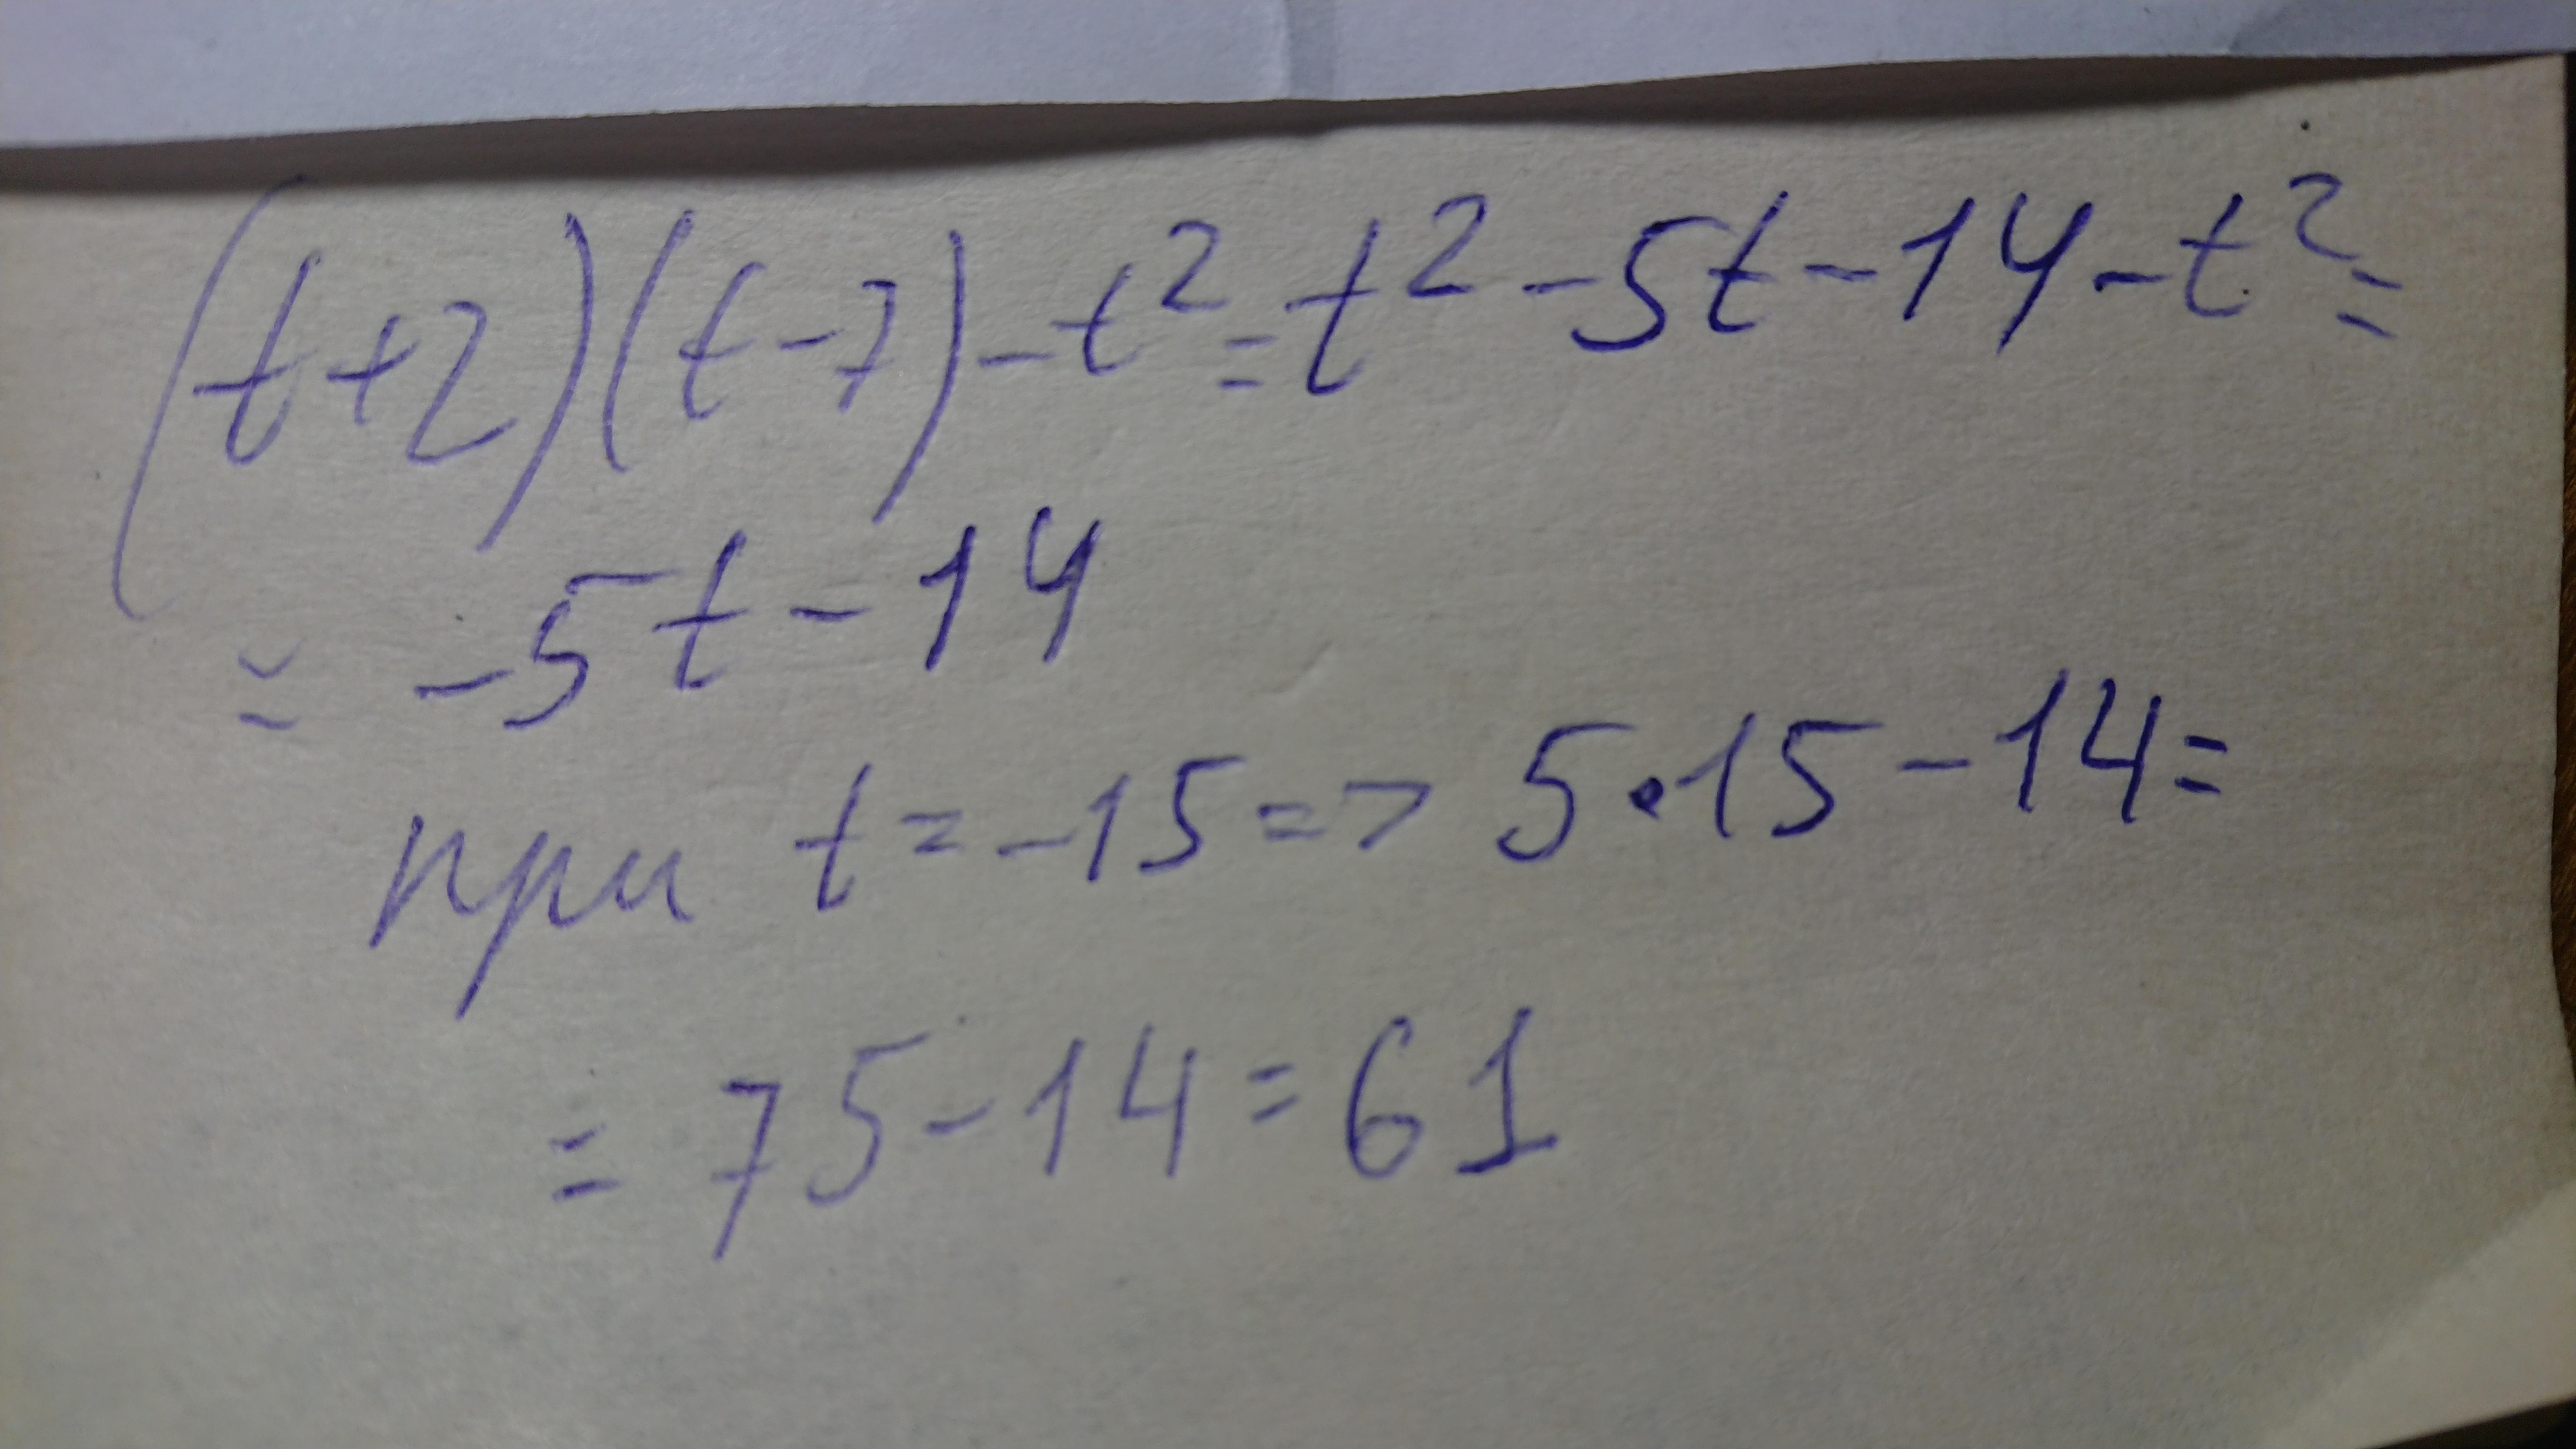 (t+2)(t-7)-t²=t²-5t-14-t²=
= -5t-14
при t=-15=> 5·15-14=
= 75-14=61